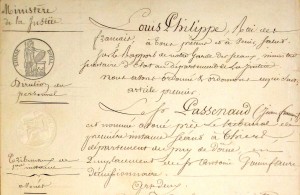 Ministère
de la Justice
Louis Philippe, Roi des
français,
à tous présens et à venir, Salut.
Sur le Rapport de notre Garde des Sceaux, ministre
secrétaire d'Etat au département de la Justice
nous avons ordonné & ordonnons ce qui suit,
Direction du
personnel
article premier.
Le Sr Passenaud
est nommé avoué près le tribunal de
première instance séant à
département du puy de Dôme
en remplacement du Sr
démissionnaire